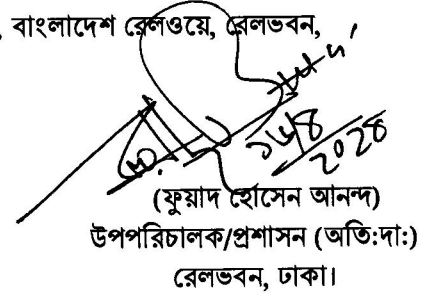 , বাংলাদেশ রেলওয়ে, রেলভবন,
(ফুয়াদ হোসেন আনন্দ)
উপপরিচালক/প্রশাসন (অতি:দা:)
রেলভবন, ঢাকা।